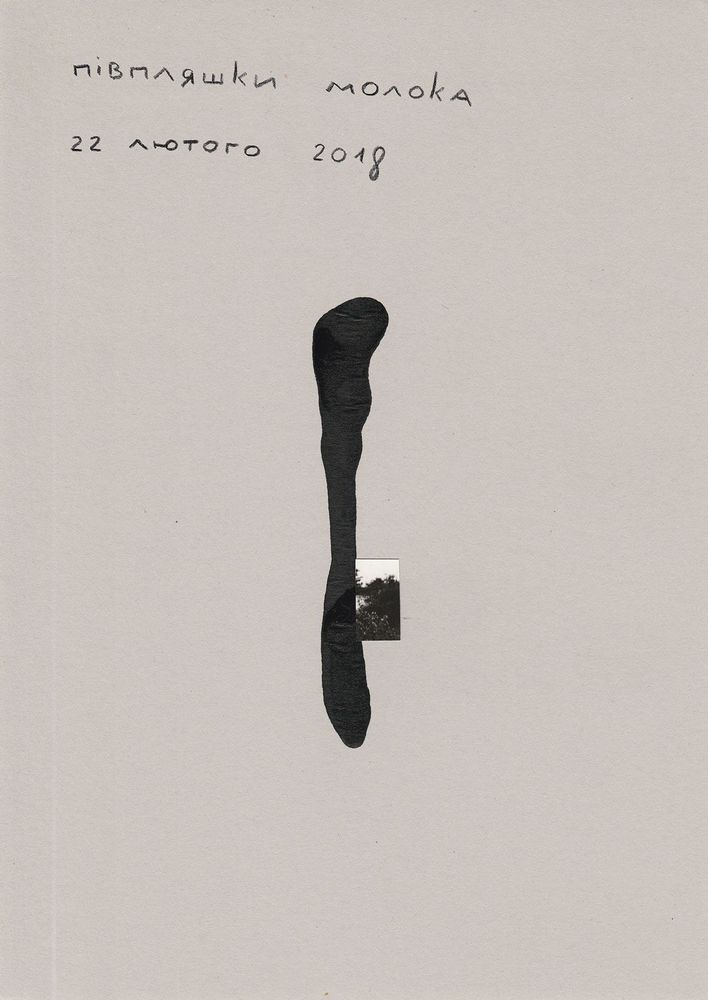 півпляшки молока
22 лютого 2018